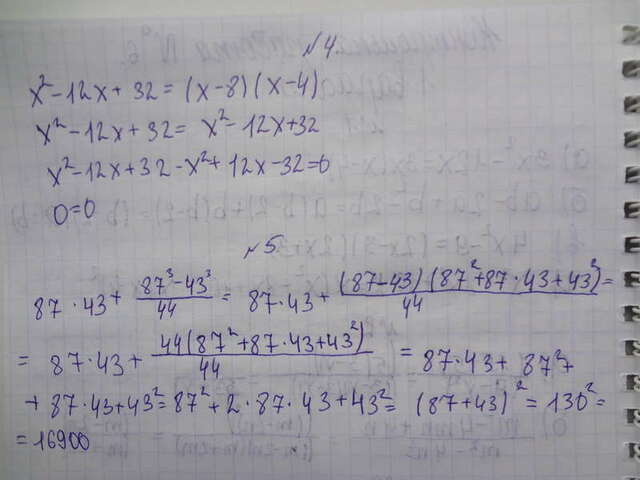 №4.
x² - 12x + 32 = (x-8)(x-4)
x² - 12x + 32 = x² - 12x + 32
x² - 12x + 32 - x² + 12x - 32 = 0
0 = 0
№5.
87·43 + (87³ - 43³)/44 = 87·43 + ((87-43)(87² + 87·43 + 43²))/44 =
= 87·43 + (44(87² + 87·43 + 43²))/44 = 87·43 + 87² +
+ 87·43 + 43² = 87² + 2·87·43 + 43² = (87+43)² = 130² =
= 16900